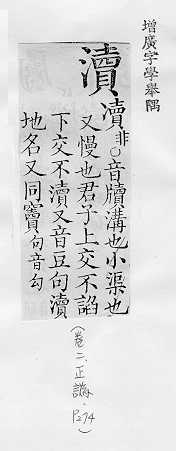 增廣字學舉隅
瀆
凟非○音牘溝也小渠也
又慢也君子上交不諂
下交不瀆又音豆句瀆
地名又同竇句音勾
(卷二、正譌·P274)